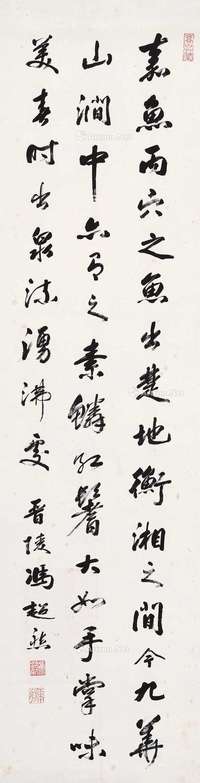 嘉魚丙穴之魚出楚地衡湘之間今九華
山澗中亦有之素鱗红鬐大如手掌味
美春时出泉流湧沸處
晋陵馮超然